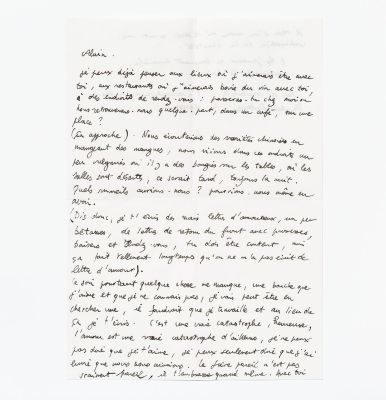 Alain.
je peux déjà penser aux lieux où j'aimerais être avec
toi, aux restaurants où j'aimerais boire du vin avec toi,
à des endroits de rendez-vous : passeras-tu chez moi ou
nous retrouverons-nous quelque part, dans un café, sur une
place ?
(En approche). Nous écouterions des variétés chinoises en
mangeant des mangues, nous irions dans ces endroits un
peu vulgaires où il y a des bougies sur les tables, où les
salles sont désertes, ce serait tard, toujours la nuit.
Quels sommeils aurions-nous ? pourrions-nous même en
avoir.
(Dis donc, je t'écris des vraies lettres d'amoureux, un peu
bêtasses, de lettre de retour du front avec promesses,
baisers et rendez-vous, tu dois être content, moi
ça fait tellement longtemps qu'on ne m'a pas écrit de
lettre d'amour).
Ce soir pourtant quelque chose me manque, une bouche que
j'aime et que je ne connais pas, je vais peut être en
chercher une, il faudrait que je travaille et au lieu de
ça je t'écris. C'est une vraie catastrophe, heureuse,
l'amour est une vraie catastrophe d'ailleurs, je ne peux
pas dire que je t'aime, je peux seulement dire que j'ai
envie que nous nous aimions. Le frère pareil n'est pas
pareil, il t'embrasse quand même. Avec toi